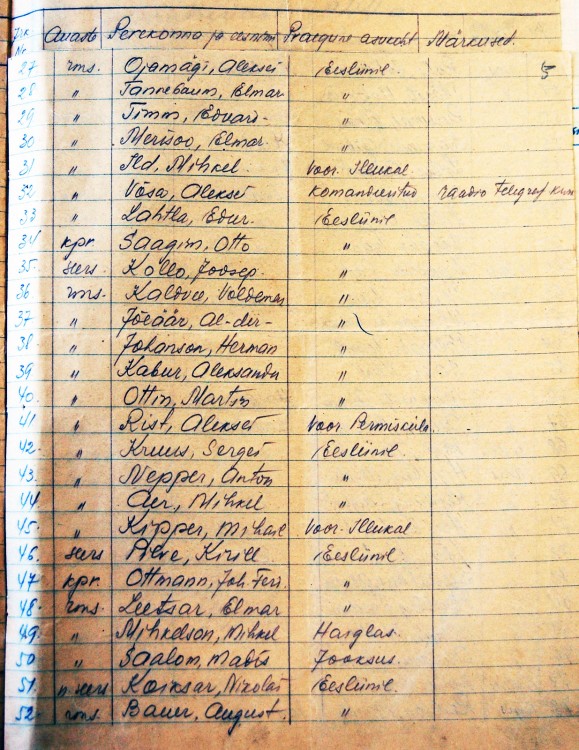 Jrk. Nr. Auaste Perekonna ja eesnimi Praegune asukoht Märkused.
5
27 rms. Ojamägi, Aleksei Eesliinil.
28 " Tannebaum, Elmar "
29 " Timm, Eduard- "
30 " Merisoo, Elmar. "
31 " Ild, Mihkel. Voor. Illukal.
32 " Võsa, Aleksei Komandeeritud raadio Telegraf
33 " Lahtla, Edur. Eesliinil
34 kpr. Saagim, Otto "
35- sers. Kollo, Joosep. "
36 rms. Kaldvee, Voldemar "
37 " Jõeäär, Al-der- "
38 " Johanson, Herman "
39 " Kabur, Aleksander "
40. " Ottin, Martin "
41 " Rist, Aleksei Voor Permisküla.
42. " Kruus, Sergei Eesliinil.
43. " Nepper, Anton "
44. " Aer, Mihkel "
45. " Kipper, Mihkel Voor. Illukal
46. sers Kirill Eesliinil.
47 kpr. Ottmann, Joh. Ferd. "
48. rms. Leetsar, Elmar "
49 " Mihkelson, Mihkel Haiglas.
50 " Saalom, Madis Jooksus.
51. n. sers Koiksar, Nikolai Eesliinil.
52. rms. Bauer, August. "